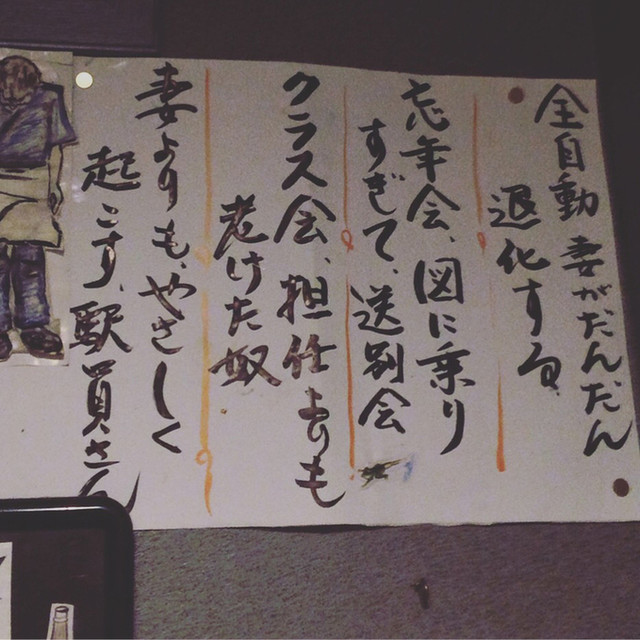 全自動 妻がだんだん
退化する。
忘年会、図に乗り
すぎて、送別会
クラス会、担任よりも
老けた奴
妻よりも、やさしく
起こす、駅員さん